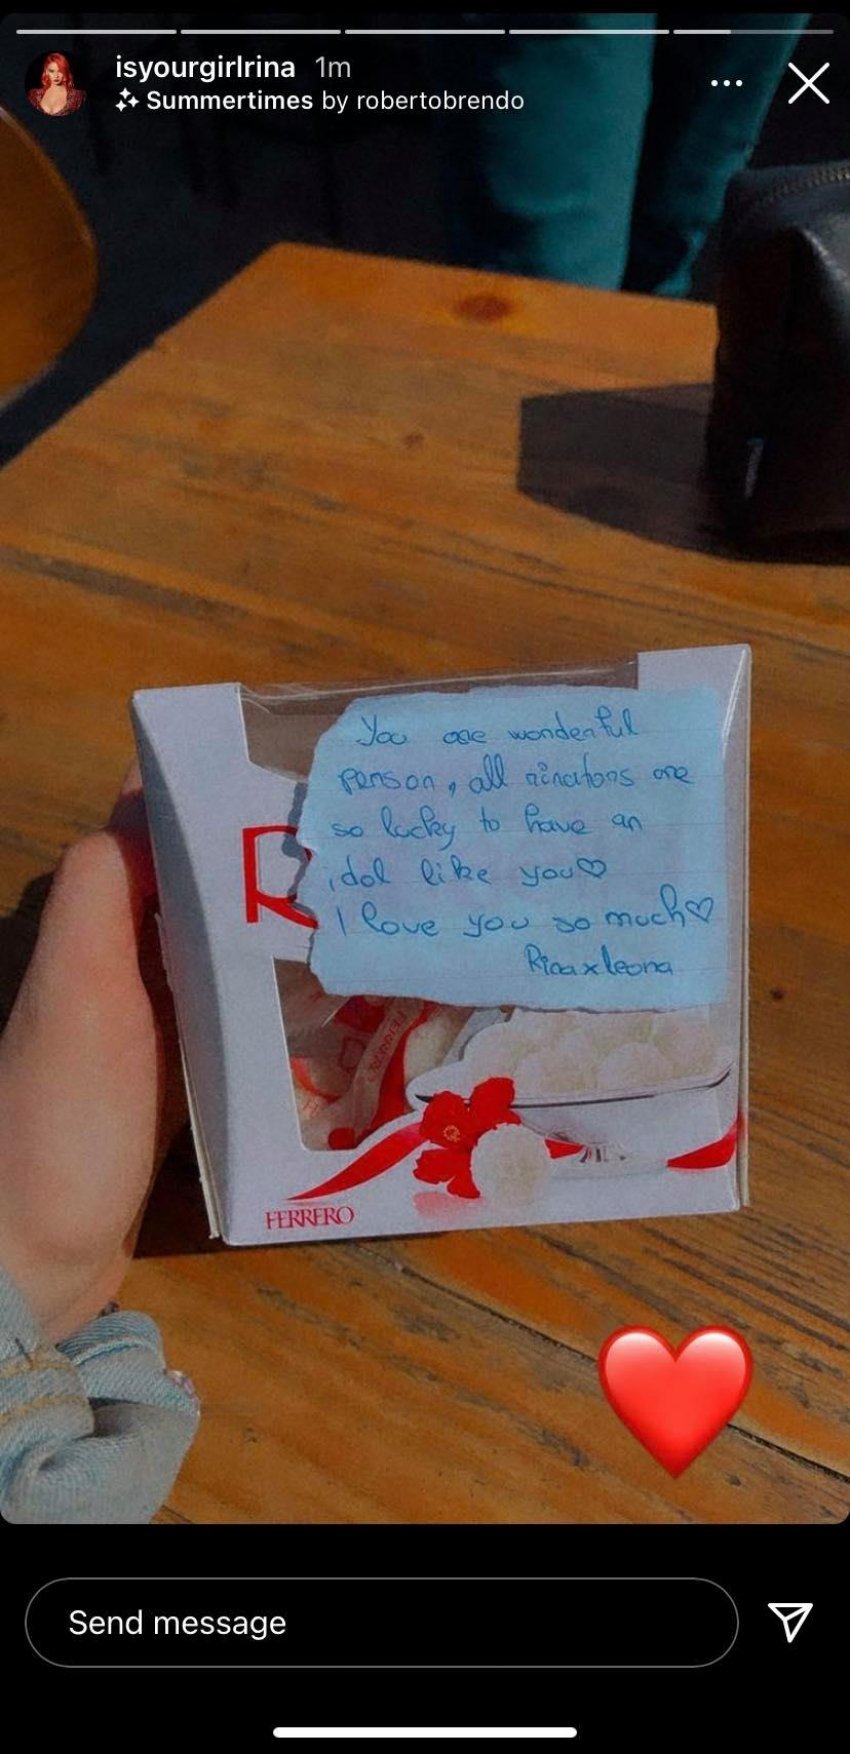 isyourgirlrina 1m
Summertimes by robertobrendo
You are wonderful
person, all rinators are
so lucky to have an
idol like you♡
I love you so much♡
Rinaxleona
R
FERRERO
Send message